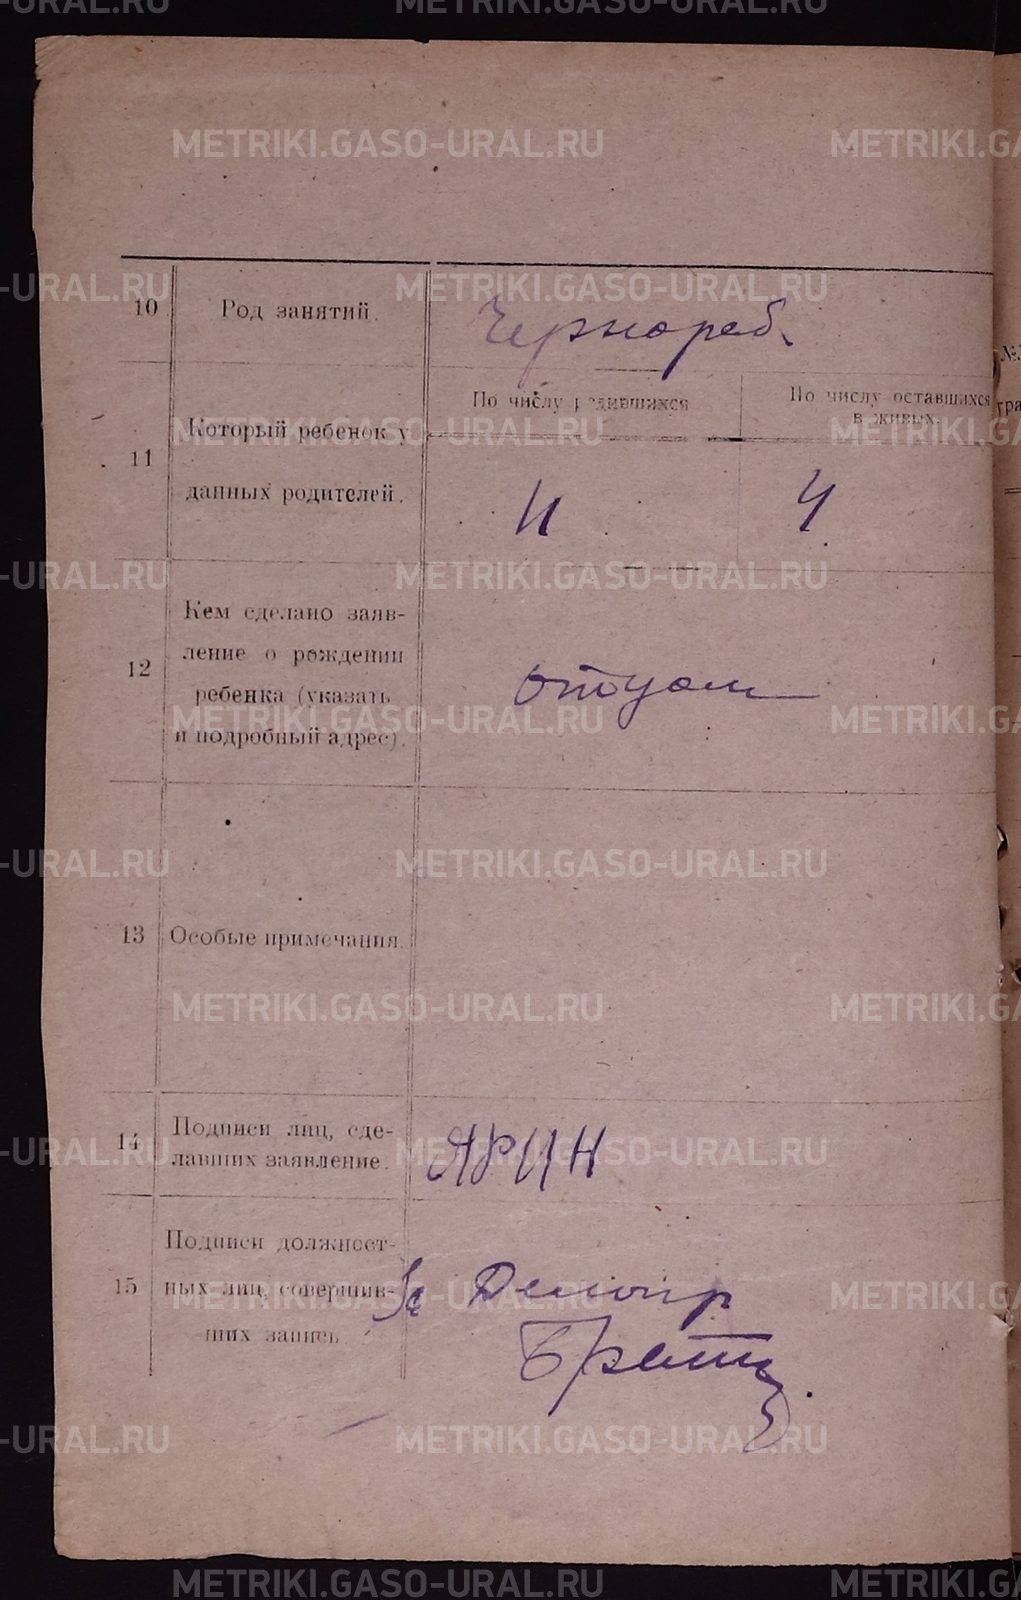 10
Род занятий.
Чернораб.
11
Который ребенок у
данных родителей.
По числу родившихся
По числу оставшихся
в живых.
4
12
Кем сделано заяв-
ление о рождении
ребенка (указать
и подробный адрес).
отцом
13
Особые примечания.
14
Подписи лиц, сде-
лавших заявление.
ЯРИН
15
Подписи должност-
ных лиц, совершив-
ших запись
За Делопр
METRIKI.GASO-URAL.RU